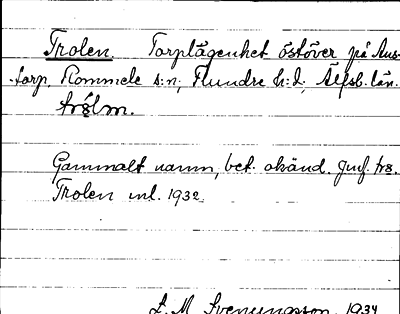 Trolen. Torplägenhet östöver på Aus-
torp, Rommele s:n, Flundre h:d, Älfsb. län.
trólm.
Gammalt namn, bet. okänd. Jmf. trs.
Trolen inl. 1932.
L. M. Svenungsson 1934